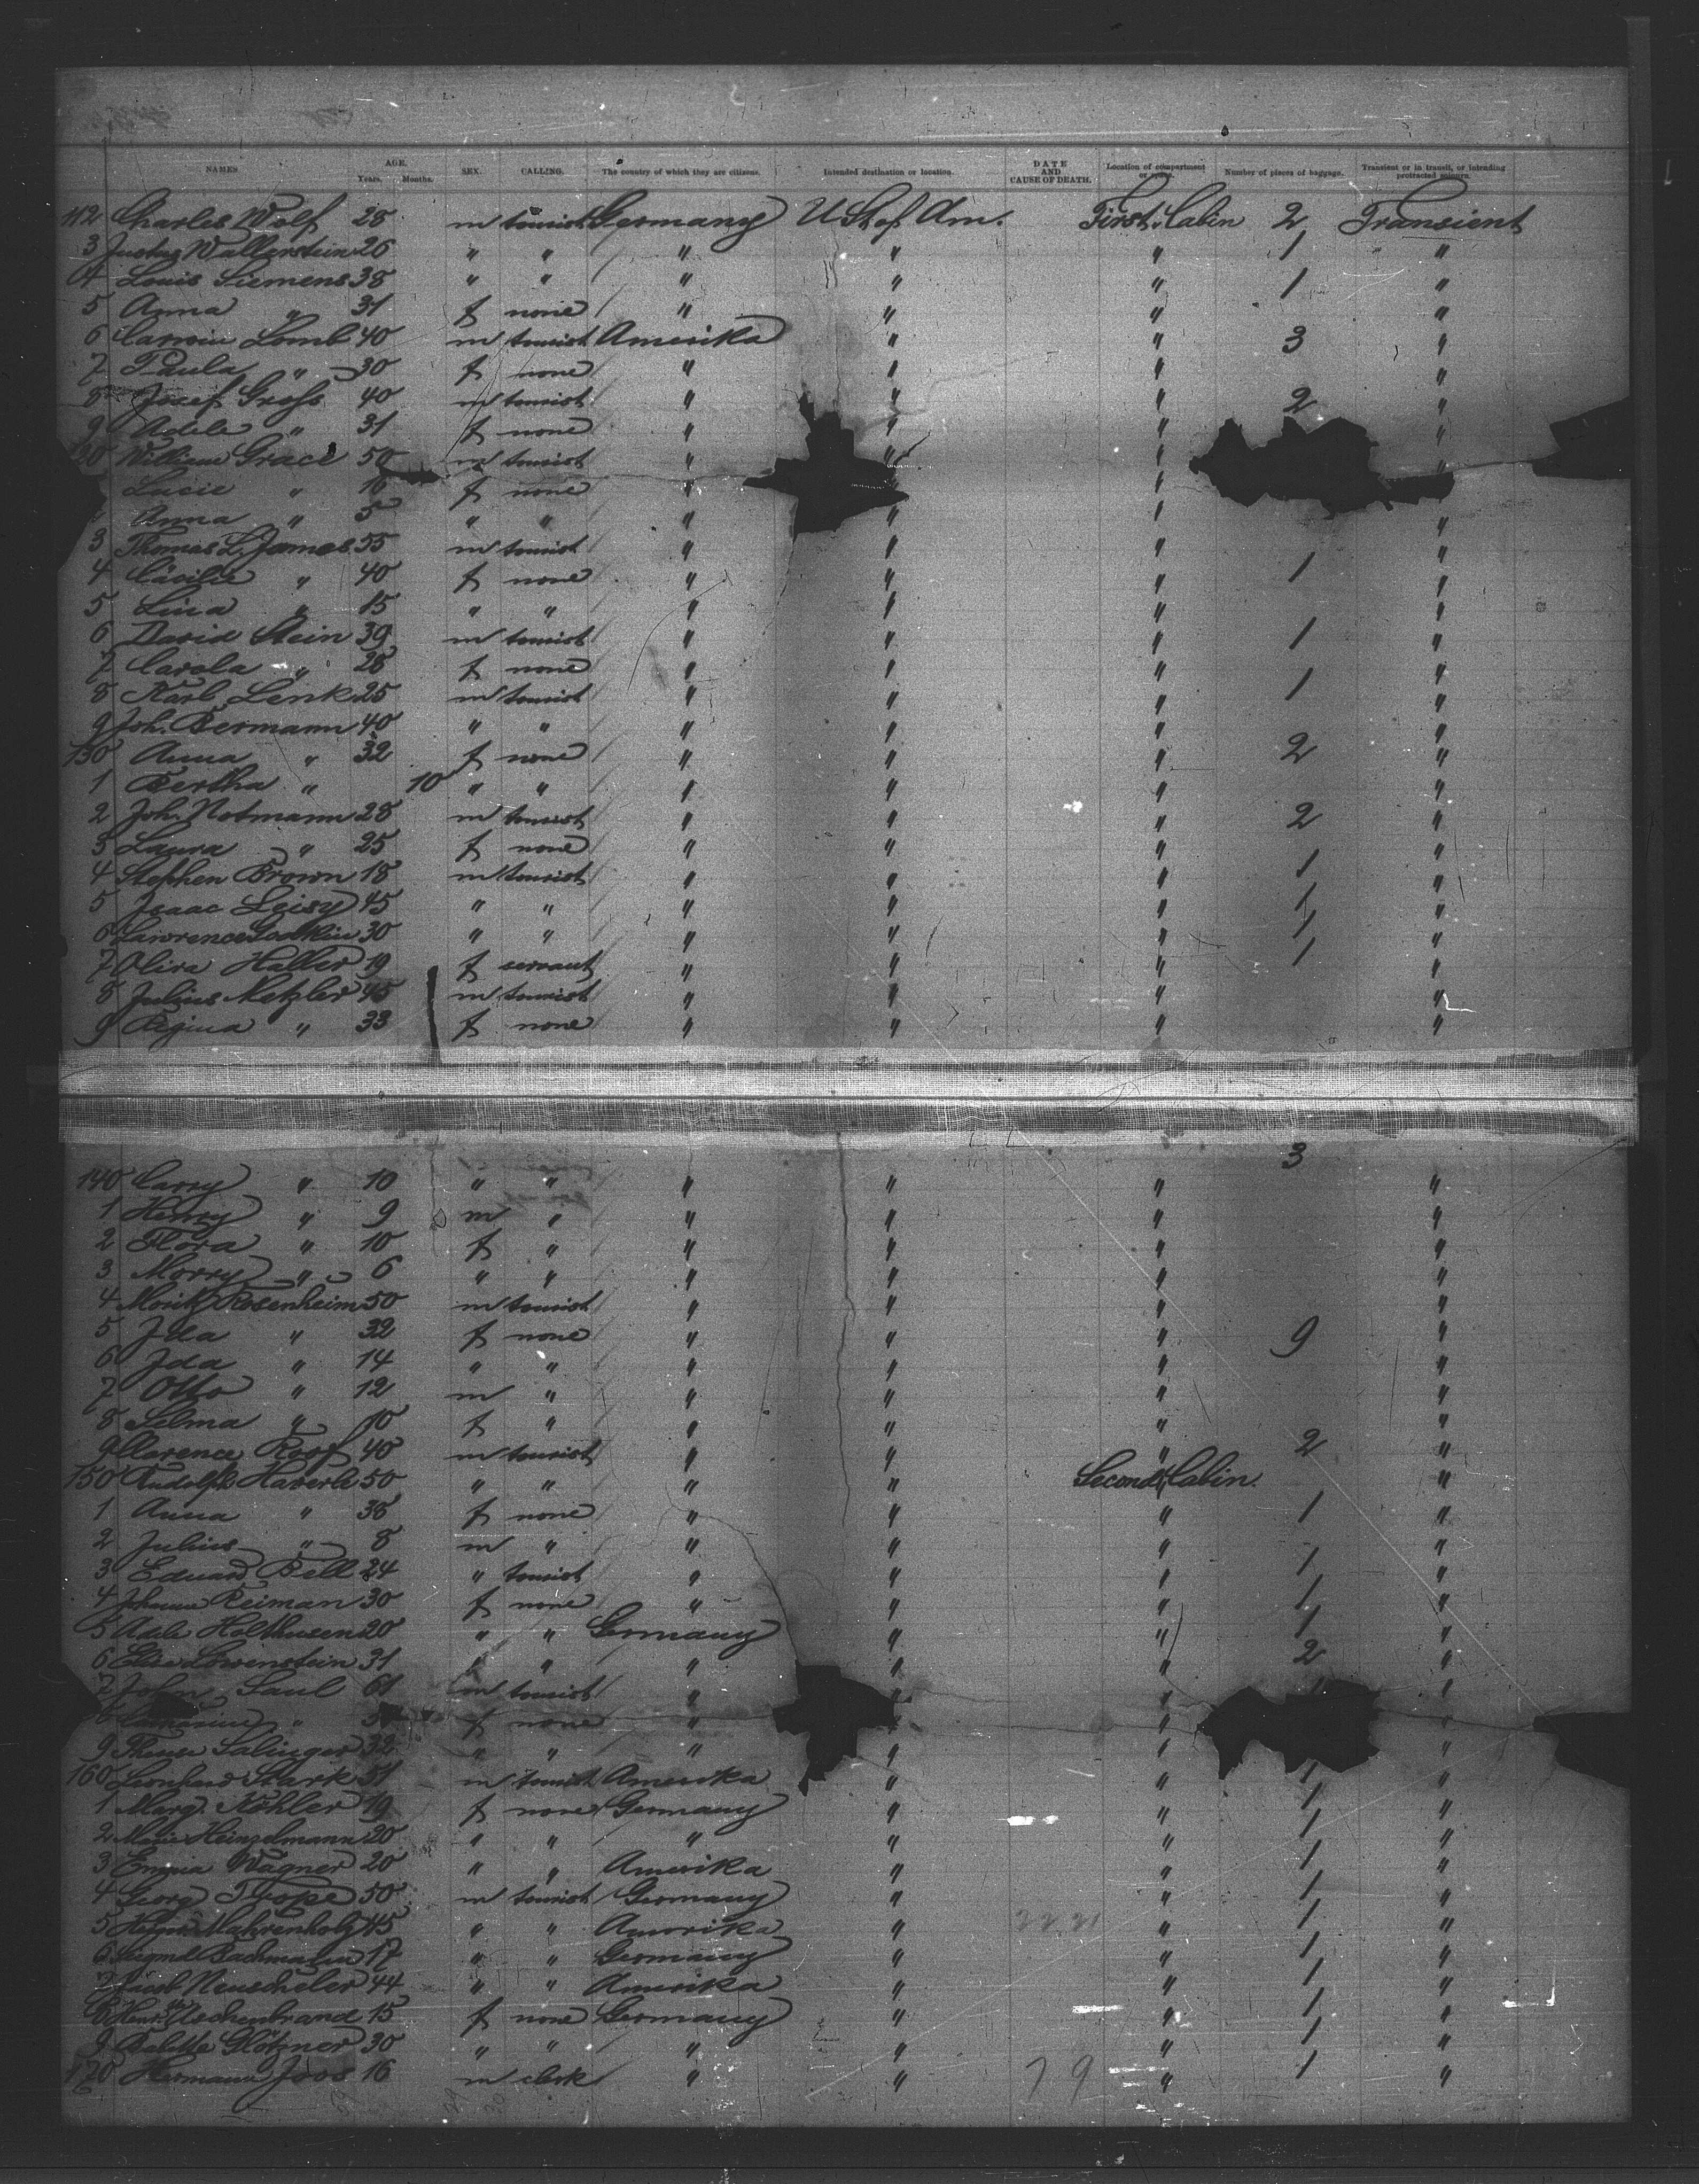 NAMES AGE. Years. Months. SEX. CALLING. The country of which they are citizens. Intended destination or location. DATE AND CAUSE OF DEATH. Location of compartment or space. Number of pieces of baggage. Transient or in transit, or intending protracted sojourn.
112 Charles Wolf 28 m tourist Germany U St of Am. First Cabin 2 Transient
3 Justus Wallerstein 26 " " " " " 1 "
4 Louis Siemens 38 " " " " " 1 "
5 Anna " 31 f none " " " "
6 Lomb 40 m tourist Amerika " " 3 "
7 Paula " 30 f none " " " "
8 Josef Groſs 40 m tourist " " " 2 "
9 Adele " 31 f none " " " "
William Grace 50 m tourist " " " "
Lucie " 16 f none " " "
Anna " 5 " " " " " "
3 Thomas L. James 55 m tourist " " " "
4 Cäcilie " 40 f none " " " 1 "
5 Lina " 15 " " " " " "
6 David Stein 39 m tourist " " " 1 "
7 Carola " 28 f none " " " "
8 Karl Lenk 25 m tourist " " " 1 "
9 Joh. Bermann 40 " " " " " "
130 Anna " 32 f none " " " 2 "
1 Bertha " 10 " " " " " "
2 Joh. Notmann 28 m tourist " " " 2 "
3 Laura " 25 f none " " " "
4 Stephen Brown 18 m tourist " " " 1 "
5 Isaac Leisy 45 " " " " " 1 "
6 Lawrence 30 " " " " " 1 "
7 Olira Haller 19 f servant " " " 1 "
8 Julius Metzler 45 m tourist " " " "
9 Regina " 33 f none " " " "
3
140 Carry " 10 " " " " " "
1 Henry " 9 m " " " " "
2 Flora " 10 f " " " " "
3 Morry " 6 " " " " " "
4 Moritz Rosenheim 50 m tourist " " " "
5 Ida " 32 f none " " " 9 "
6 Ida " 14 " " " " " "
7 Otto " 12 m " " " " "
8 Selma " 10 f " " " " "
9 Clarence Roof 40 m tourist " " " 2 "
150 Rudolph Haverle 50 " " " " Second Cabin. "
1 Anna " 38 f none " " " 1 "
2 Julius " 8 m " " " " "
3 Eduard Bell 24 " tourist " " " 1 "
4 Johanna Reiman 30 f none " " " 1 "
5 Adele Holthusen 20 " " Germany " " 1 "
6 Elise Löwenstein 31 " " " " " 2 "
7 John Saul 61 m tourist " " " "
Catharine " f none " " "
9 Salinger 32 " " " " " "
160 Leonhard Stark 51 m tourist Amerika " " 1 "
1 Marg. Köhler 19 f none Germany " " 1 "
2 Marie Heinzelmann 20 " " " " " 1 "
3 Emma Wagner 20 " " Amerika " " 1 "
4 Georg 50 m tourist Germany " " 1 "
5 Mahrenholz 45 " " Amerika " " 1 "
6 Bachmann 17 " " Germany " " 1 "
7 Jacob Neuscheler 44 " " Amerika " " 1 "
8 Aschenbrand 15 f none Germany " " 1 "
9 Babette Glötzner 30 " " " " " 1 "
170 Hermann Joos 16 m clerk " " 79 " 1 "